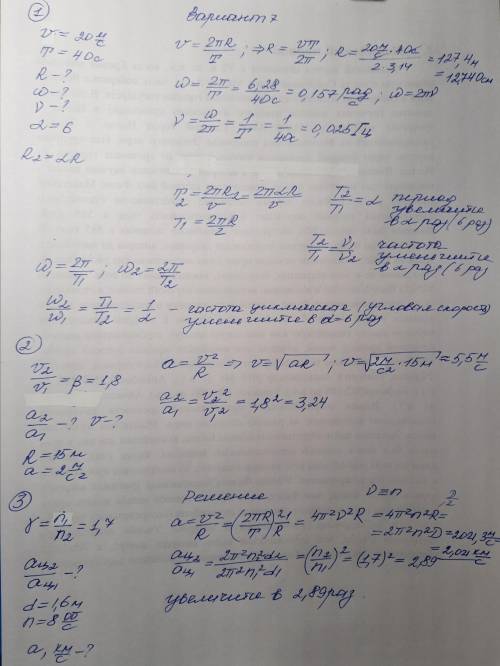 ① Вариант 7
v = 20 м/с
T = 40с
R - ?
ω - ?
ν - ?
α = 6
R₂ = αR
v = 2πR/T ; ⇒ R = vT/2π ; R = 20 м/с · 40с / 2·3,14 = 127,4м
= 12740см
ω = 2π/T = 6,28/40с = 0,157 рад/с ; ω = 2πν
ν = ω/2π = 1/T = 1/40с = 0,025 Гц
T₂ = 2πR₂/v = 2παR/v T₂/T₁ = α период
увеличится
в α раз (6 раз)
T₁ = 2πR/v
T₂/T₁ = ν₁/ν₂ частота
уменьшится
в α раз (6 раз)
ω₁ = 2π/T₁ ; ω₂ = 2π/T₂
ω₂/ω₁ = T₁/T₂ = 1/α – частота циклическая (угловая скорость)
уменьшится в α=6 раз
②
v₂/v₁ = β = 1,8
a₂/a₁ - ? v - ?
R = 15м
a = 2 м/с²
a = v²/R ⇒ v = √aR ; v = √2 м/с² · 15м = 5,5 м/с
a₂/a₁ = v₂²/v₁² = 1,8² = 3,24
③ Решение D = n
γ = n₁/n₂ = 1,7
aц₂/aц₁ - ?
d = 1,6м
n = 8 об/с
a, км/с - ?
a = v²/R = (2πR/T)² 1/R = 4π²ν²R = 4π²n²R =
= 2π²n²D = 2021,3 м/с
= 2,021 км/с
aц₂/aц₁ = 2π²n₂²d₂/2π²n₁²d₁ = (n₂/n₁)² = (1,7)² = 2,89
увеличится в 2,89 раз.